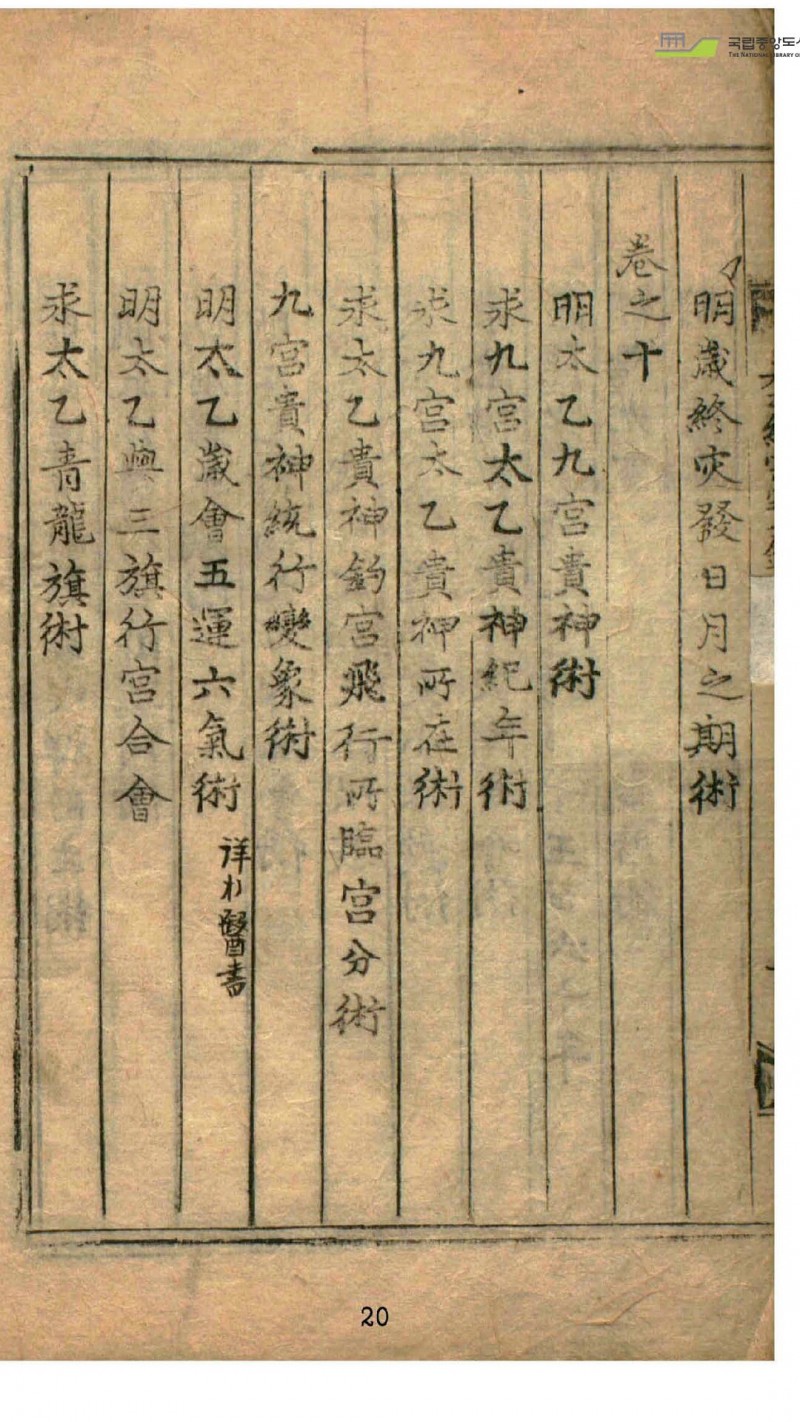 明歲終灾發日月之期術
卷之十
明太乙九宮貴神術
求九宮太乙貴神紀年術
求九宮太乙貴神所在術
求太乙貴神釣宮飛行所臨宮分術
九宮貴神統行變象術
明太乙歲會五運六氣術 詳於醫書
明太乙與三旗行宮合會
求太乙青龍旗術
20
국립중앙도서
THE NATIONAL LIBRARY O